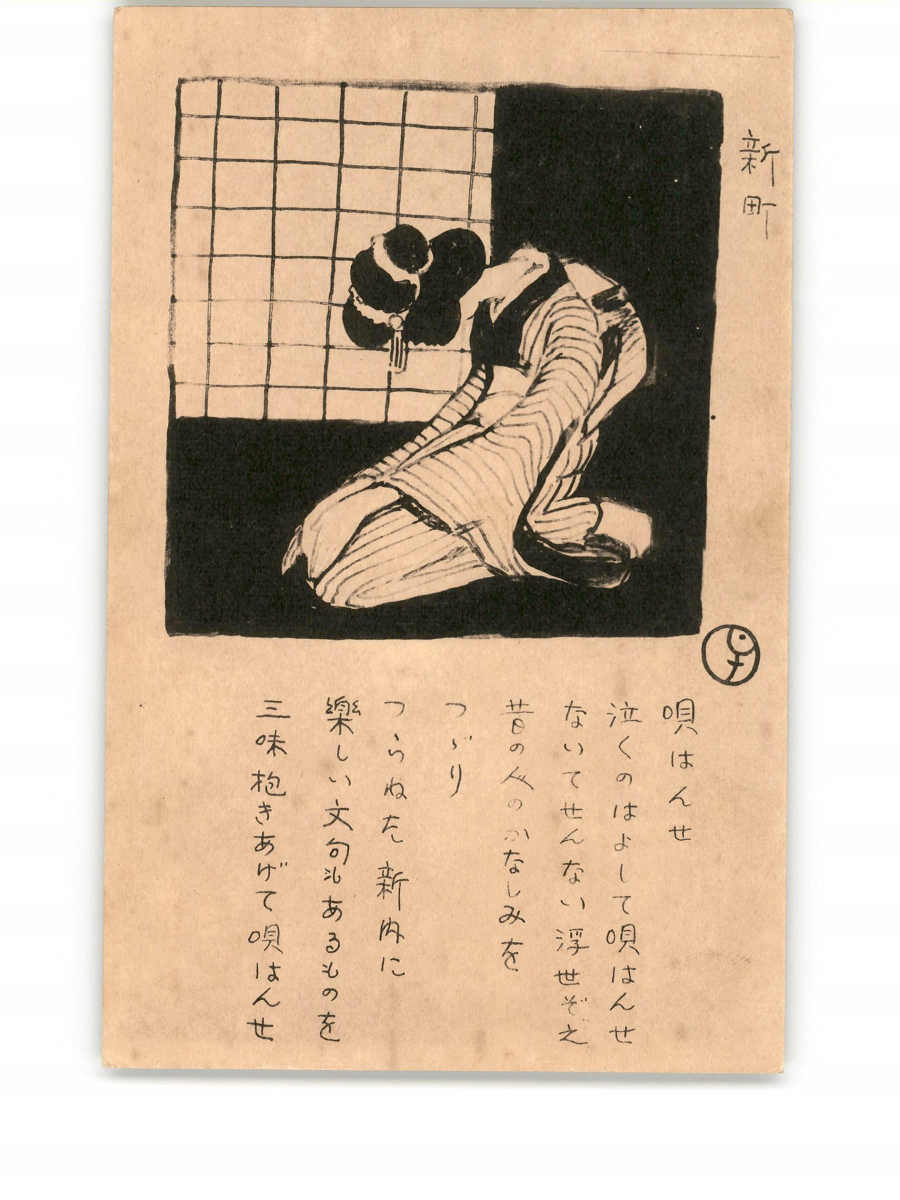 新町
唄はんせ
泣くのはよして唄はんせ
ないてせんない浮世ぞえ
昔の人のかなしみを
つゞり
つらねた新内に
樂しい文句もあるものを
三味抱きあげて唄はんせ